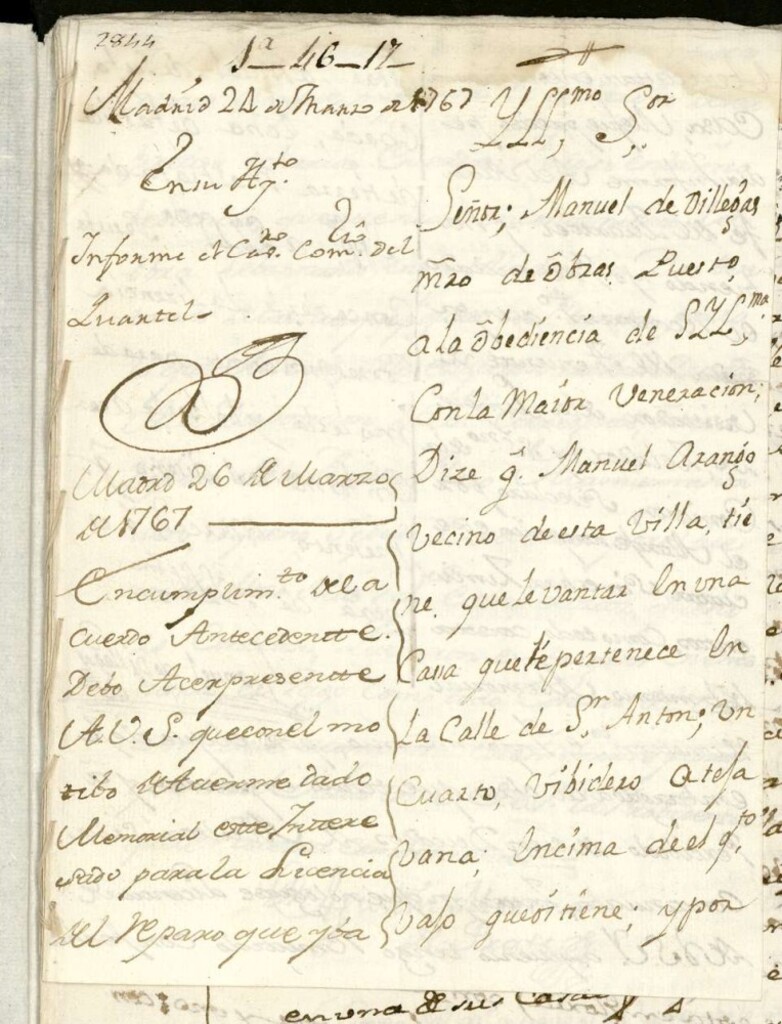 2844
1ª-46-17-
Madrid 24 de Marzo de 1767
En su Ayto.
Informe el Cavro. Comrio. del
Quartel-
Madrd 26 de Marzo
de 1767
En cumplimto. de el a
cuerdo Antecedentte.
Debo Acer presentte
A. V. S. que con el mo
tibo de Averme dado
Memorial estte Intere
sado para la Licencia
del Reparo que yba
YLLmo, Sor,
Señor; Manuel de Villegas
Mro de obras, Puesto,
a la obediencia de S YLma,
Con la Maior Veneracion;
Dize q. Manuel Arango
vecino de esta Villa, tie
ne. que levantar En una
Casa que le pertenece En
La Calle de Sn. Anton; un
Cuarto, vibidero a teja
vana; Encima de el qto
vajo que oi tiene; y por
en una de sus Casas